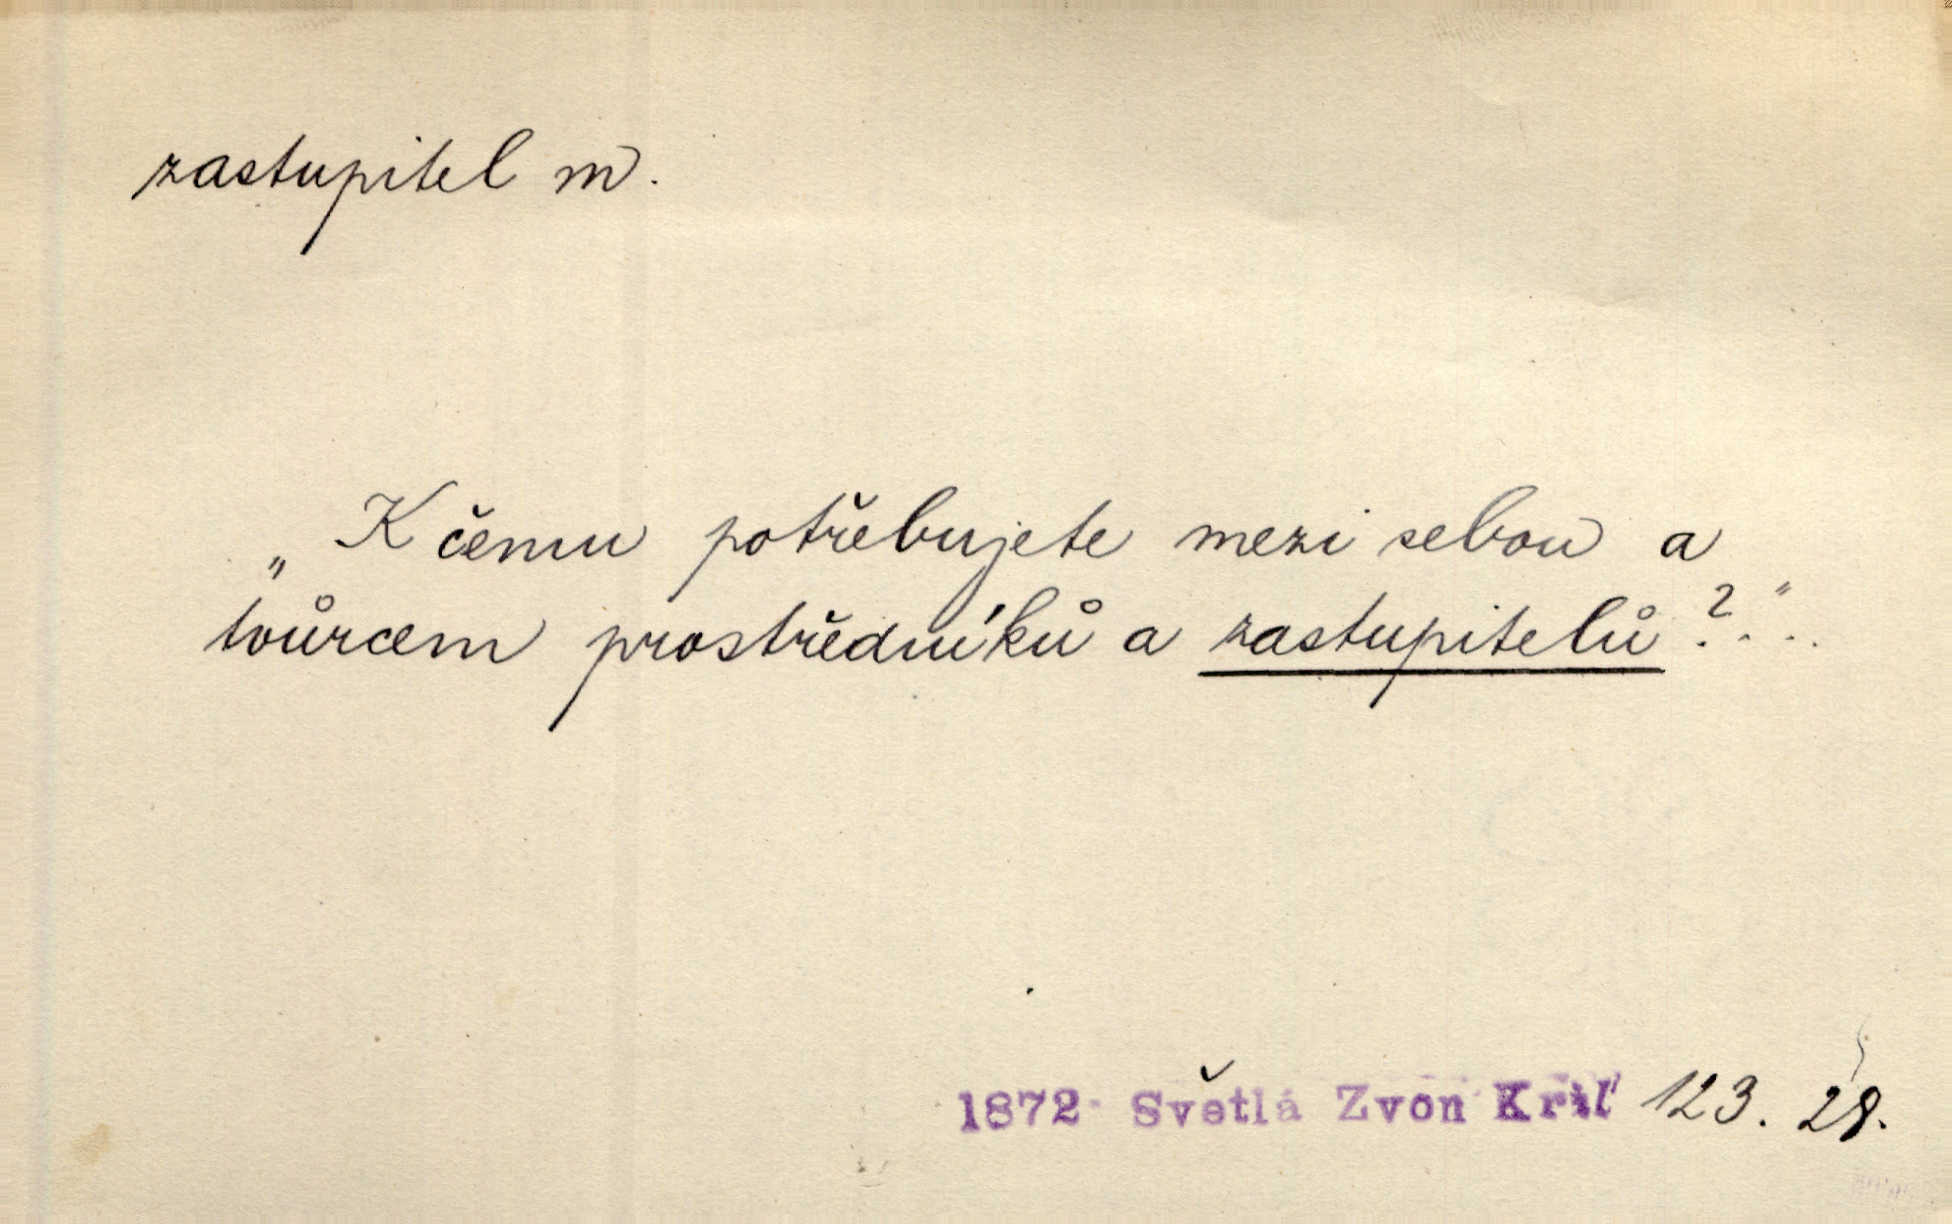 zastupitel m.
„K čemu potřebujete mezi sebou a
tvůrcem prostředníků a zastupitelů?"...
1872 Světlá Zvon Král 123. 28.